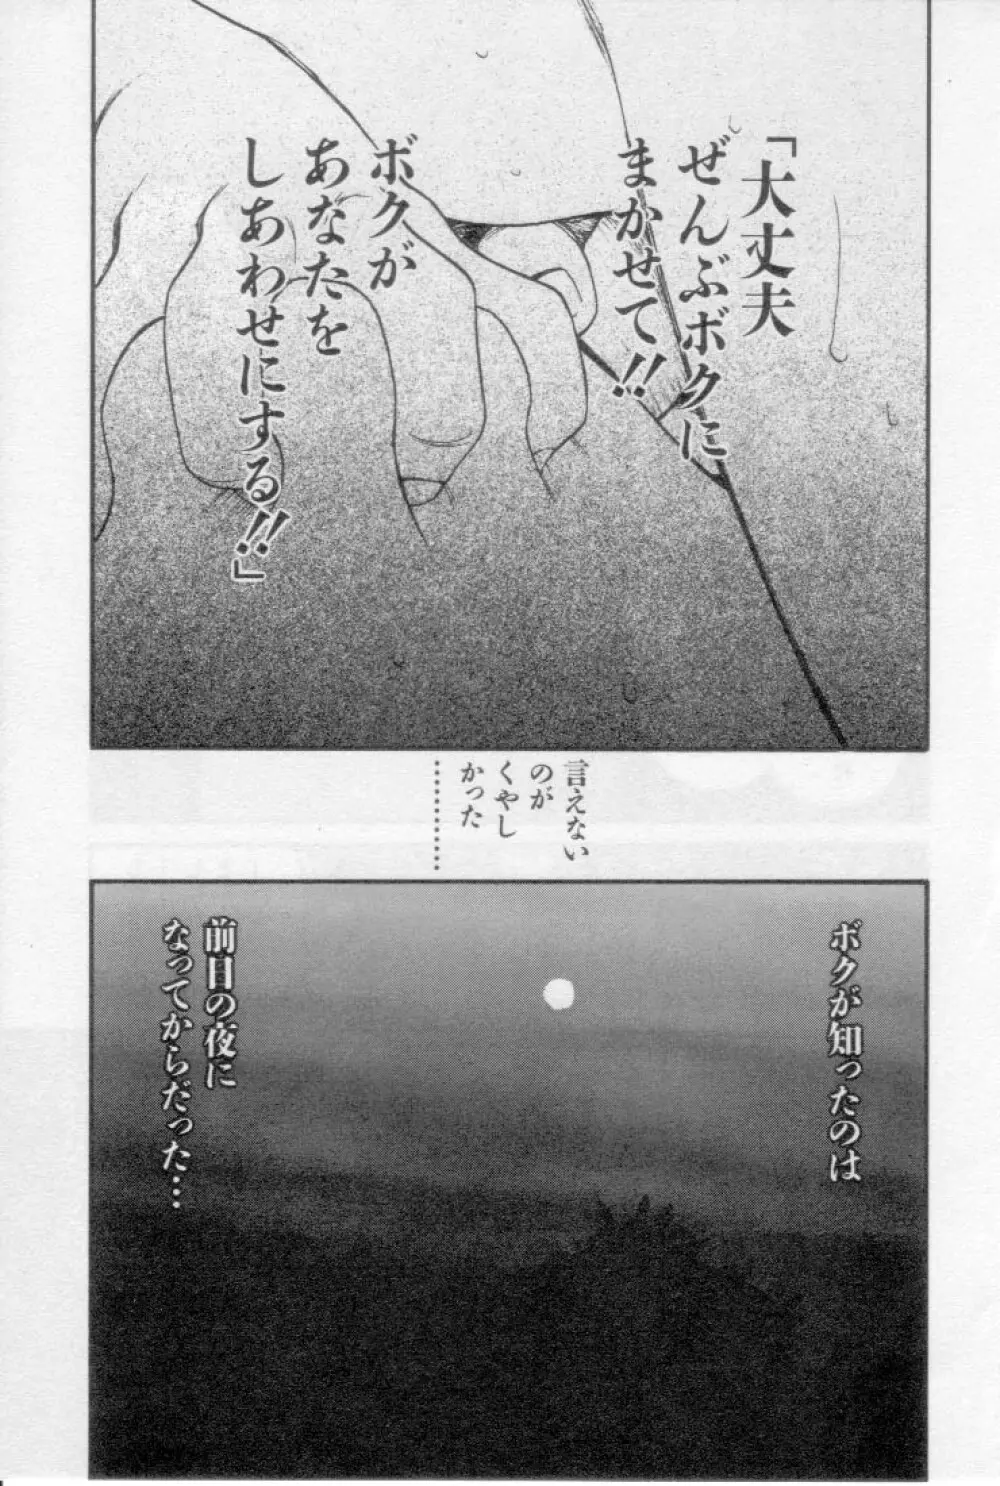 「大丈夫
ぜんぶボクに
まかせて!!
ボクが
あなたを
しあわせにする!!」
言えない
のが
くやし
かった
…………
ボクが知ったのは
前日の夜に
なってからだった…